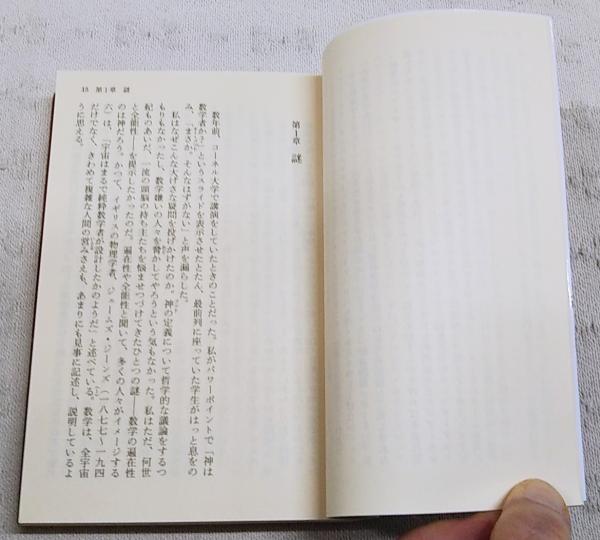 15 第1章 謎
第1章 謎
数年前、コーネル大学で講演をしていたときのことだった。私がパワーポイントで「神は
数学者か?」というスライドを表示させたとたん、最前列に座っていた学生がはっと息をの
み、「まさか、そんなはずがない」と声を漏らした。
私はなぜこんな大げさな疑問を投げかけたのか。神の定義について哲学的な議論をするつ
もりもなかったし、数学嫌いの人々を脅かしてやろうという気もなかった。私はただ、何世
紀ものあいだ、一流の頭脳の持ち主たちを悩ませつづけてきたひとつの謎——数学の遍在性
と全能性——を提示したかったのだ。遍在性や全能性と聞いて、多くの人々がイメージする
のは神だろう。かつて、イギリスの物理学者、ジェームズ・ジーンズ(一八七七〜一九四
六)は、「宇宙はまるで純粋数学者が設計したかのようだ」と述べている。数学は、全宇宙
だけでなく、きわめて複雑な人間の営みさえも、あまりにも見事に記述し、説明しているよ
うに思える。